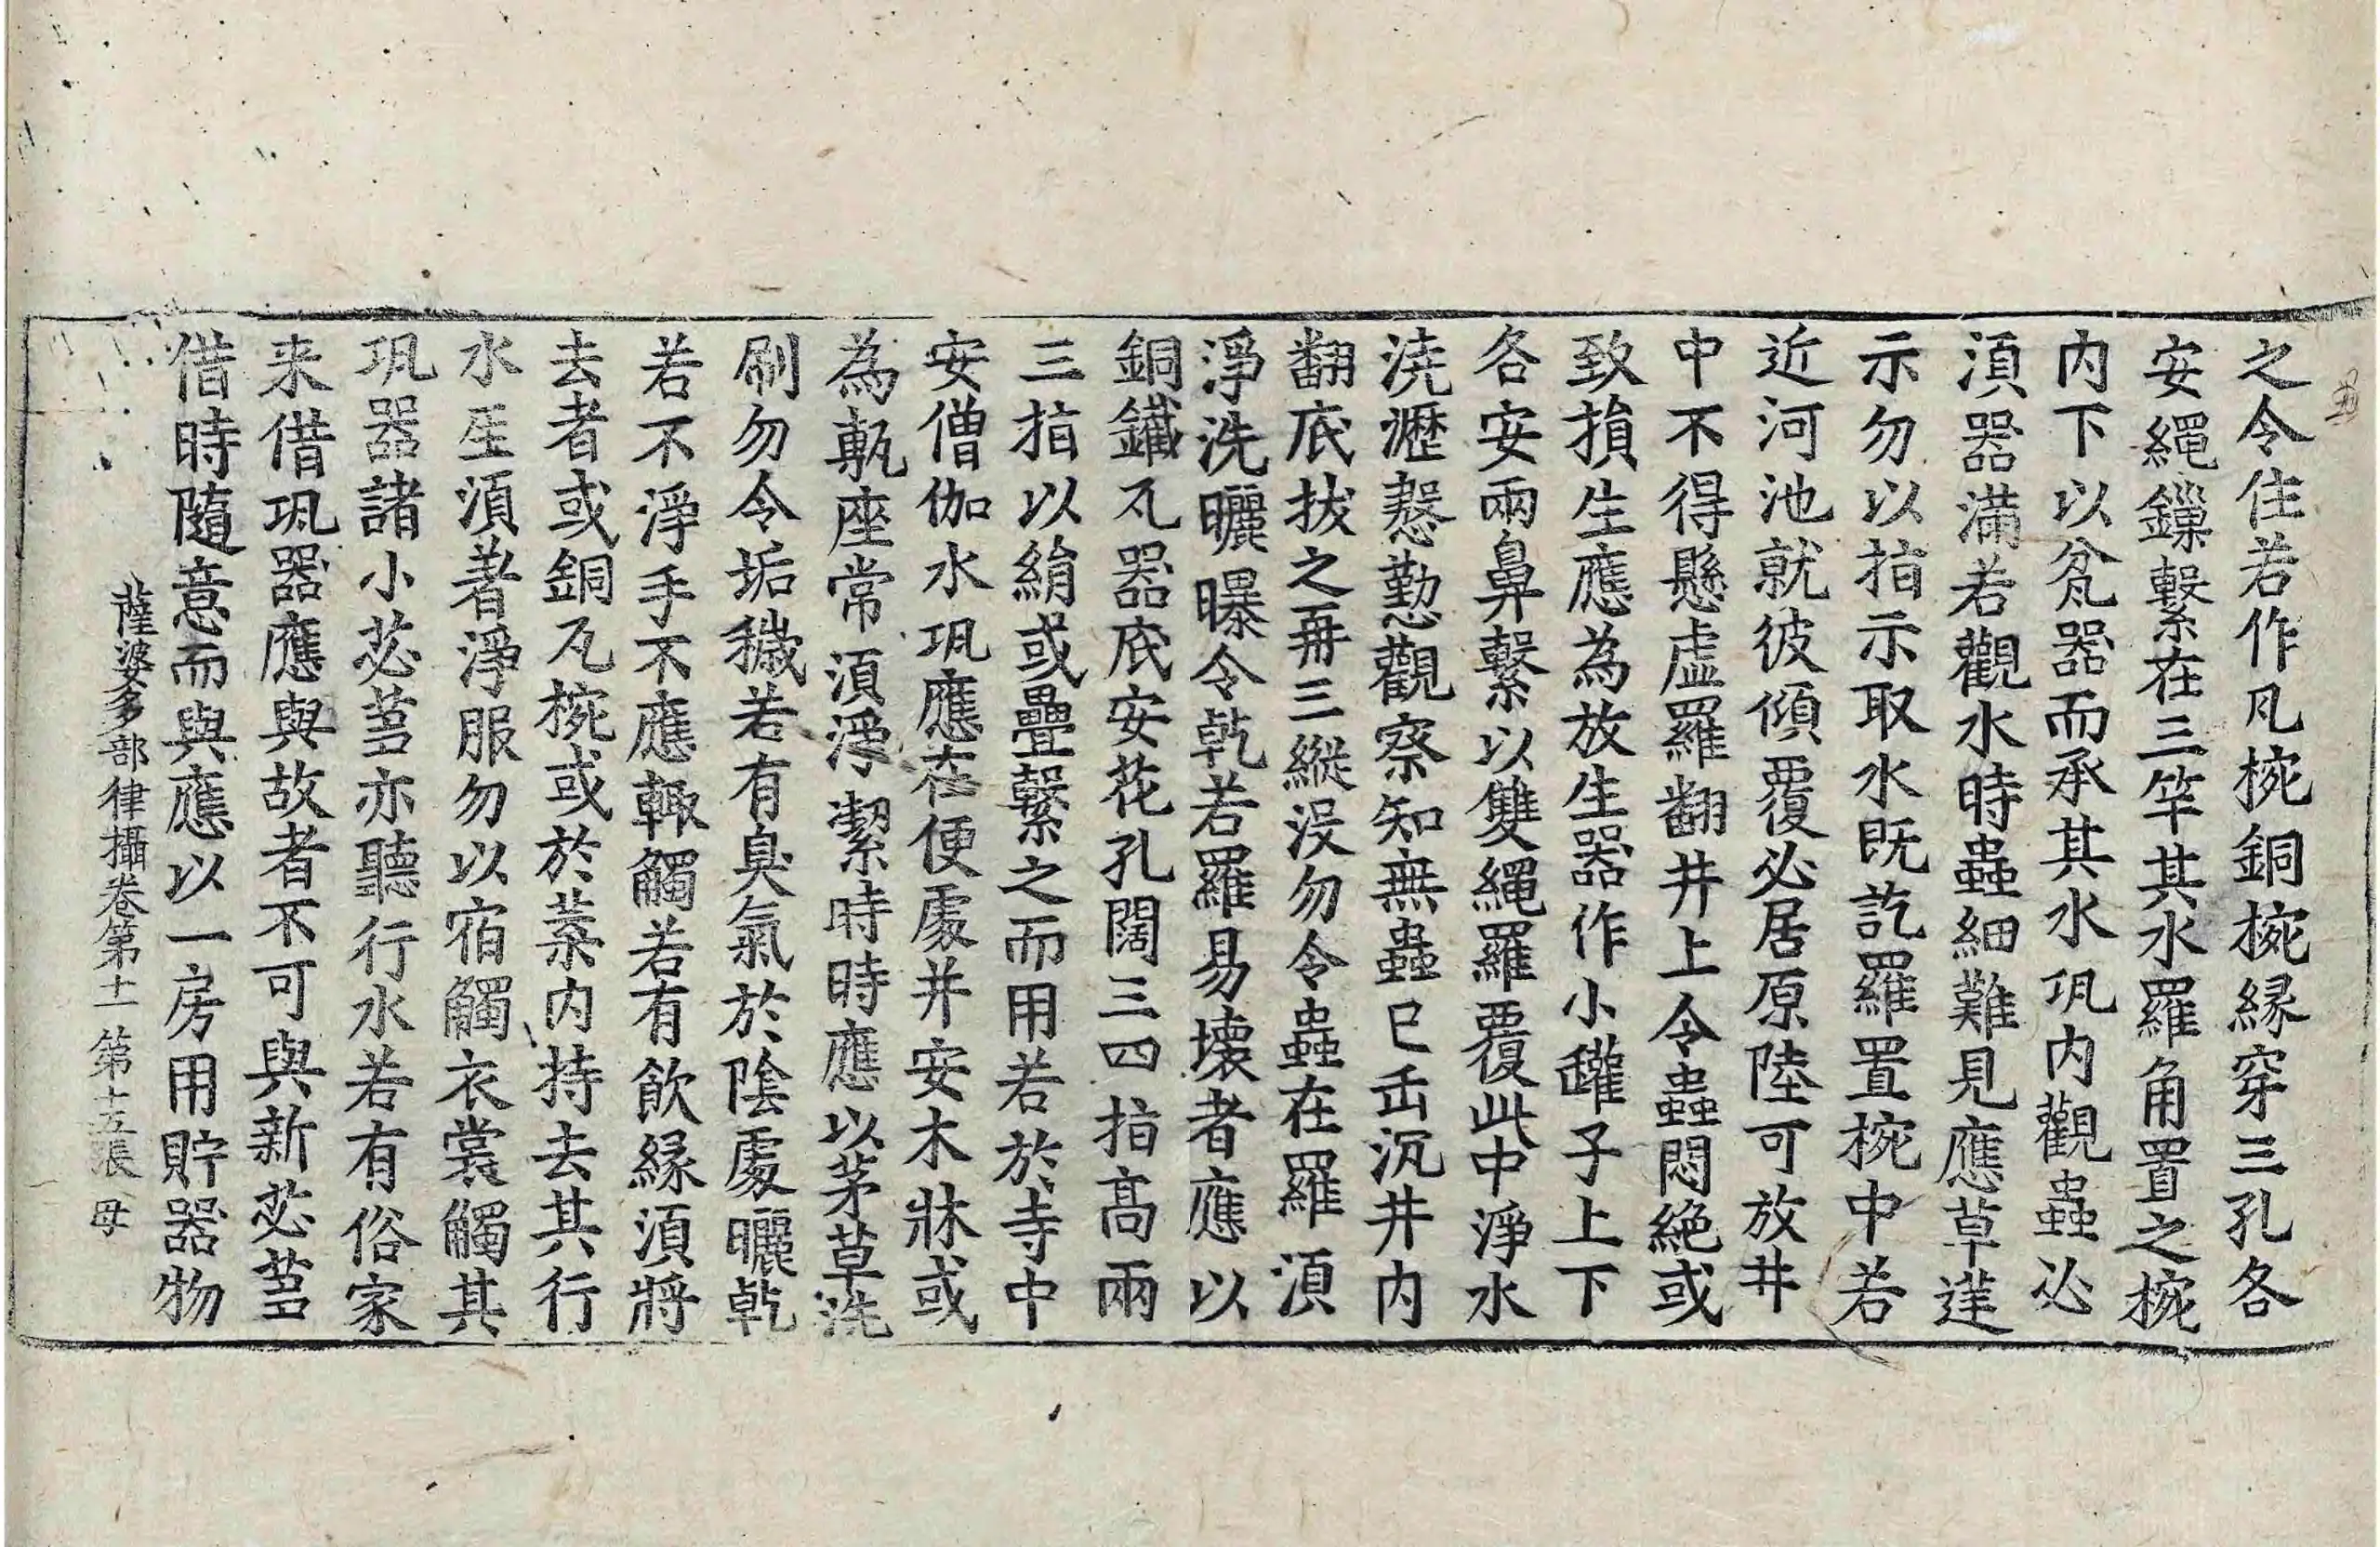 之令住若作凡椀銅椀緣穿三孔各
安繩鏁繫在三竿其水羅角置之椀
內下以瓫器而承其水瓨內觀蟲必
湏器滿若觀水時蟲細難見應草莛
示勿以指示取水旣訖羅置椀中若
近河池就彼傾覆必居原陸可放井
中不得懸虛羅翻井上令蟲悶絕或
致損生應為放生器作小罐子上下
各安兩鼻繫以雙繩羅覆此中淨水
澆瀝慇懃觀察知無蟲已缶沉井內
翻底拔之再三縱沒勿令蟲在羅湏
淨洗曬曝令乹若羅易壞者應以
銅鐵瓦器底安花孔闊三四指髙兩
三指以絹或疊繫之而用若於寺中
安僧伽水瓨應在便處并安木牀或
為甎座常湏淨潔時時應以茅草洗
刷勿令垢穢若有臭氣於陰處曬乹
若不淨手不應輙觸若有飮緣湏將
去者或銅瓦椀或於葉內持去其行
水𤯔湏著淨服勿以宿觸衣裳觸其
瓨器諸小苾芻亦聽行水若有俗家
来借瓨器應與故者不可與新苾芻
借時隨意而與應以一房用貯器物
薩婆多部律攝卷第十一 第十五張 母